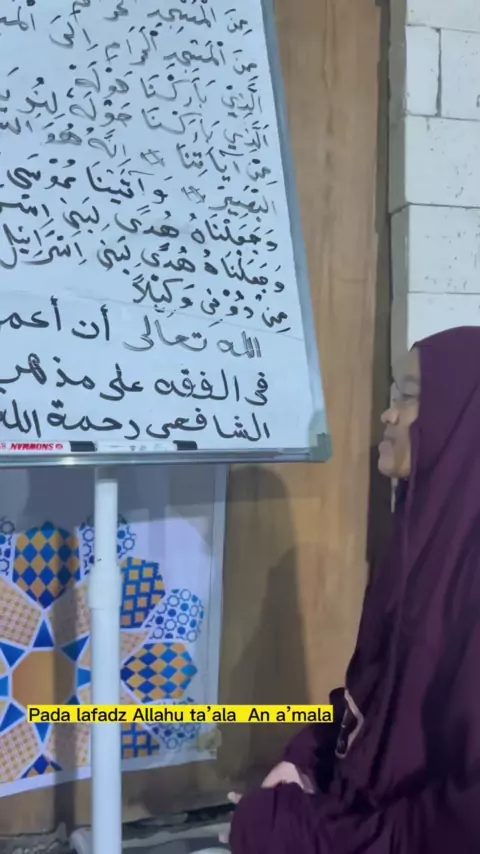 مِنَ الْمَسْجِدِ
مِنَ الْمَسْجِدِ الْحَرَامِ اِلَى
الَّذِيْ بَارَكْنَا حَوْلَهُ
الَّذِيْ بَارَكْنَا حَوْلَهُ
مِنْ آيَاتِنَا اِنَّهُ هُوَ
الْبَصِيْرُ وَآتَيْنَا مُوْسَى
وَجَعَلْنَاهُ هُدًى لِبَنِيْ
وَجَعَلْنَاهُ هُدًى لِبَنِيْ اِسْرَائِيْلَ
مِنْ دُوْنِيْ وَكِيْلًا
الله تعالى أن
في الفقه على مذهب
الشافعي رحمة الله
SNOWMAN
Pada lafadz Allahu ta’ala An a’mala